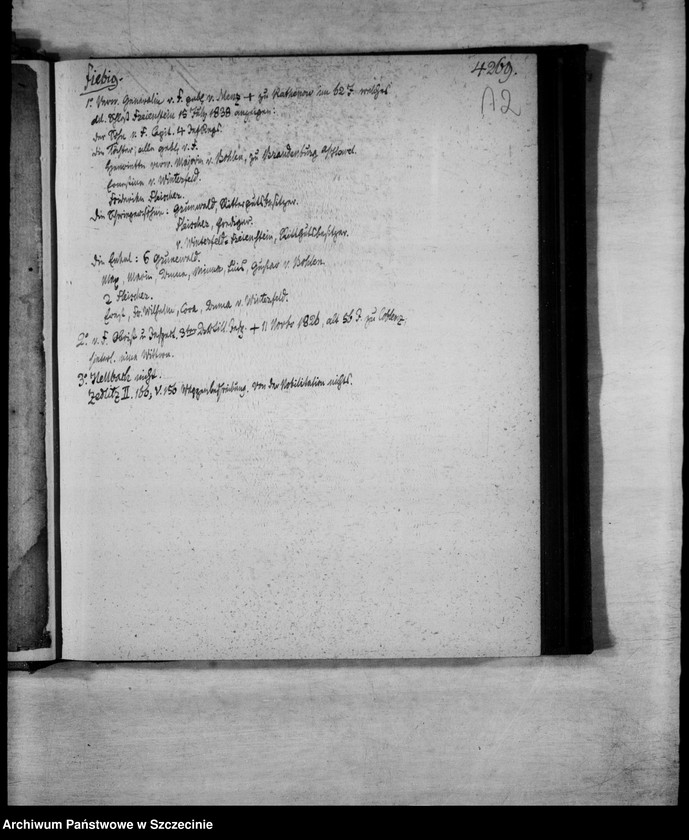 4269.
A2
Fiebig.
1. Verw. Generalin v. F. gebh. v. Menz + zu Rathenow im 62 J. welches
dd. Schloß Freienstein 18 July 1838 anzeigen:
der Sohn v. F. Capit. 4 Inf Regt.
die Töchter; alle gebh. v. F.
Henriette verw. Majorin v. Bohlen, zu Brandenburg a/Havel.
Ernestine v. Winterfeld.
Friderike Fleischer.
Die Schwiegersöhne: Grunewald, Rittergutsbesitzer.
Fleischer, Prediger.
v. Winterfeld-Freienstein, Rittgutsbesitzer.
Die Enkel: 6 Grunewald.
Max, Marie, Emma, Minna, Gustav v. Bohlen
2 Fleischer.
Ernst, Fr. Wilhelm, Cora, Emma v. Winterfeld.
2. v. F. Obrist u. Inspect. 3ter + 11 Novbr 1826, alt 56 J. zu Coblenz,
hinterl. eine Wittwe.
3. Hellbach nicht.
Zedlitz II. 166; V. 156 Wappenbeschreibung. von der Nobilitation nichts.
Archiwum Państwowe w Szczecinie